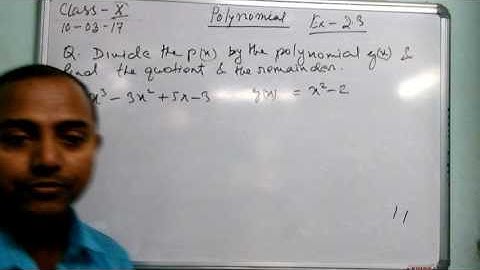 Class - X Polynomial Ex - 2.3
10-03-17
Q. Divide the p(x) by the polynomial g(x) &
find the quotient & the remainder.
x³ - 3x² + 5x - 3 g(x) = x² - 2
11